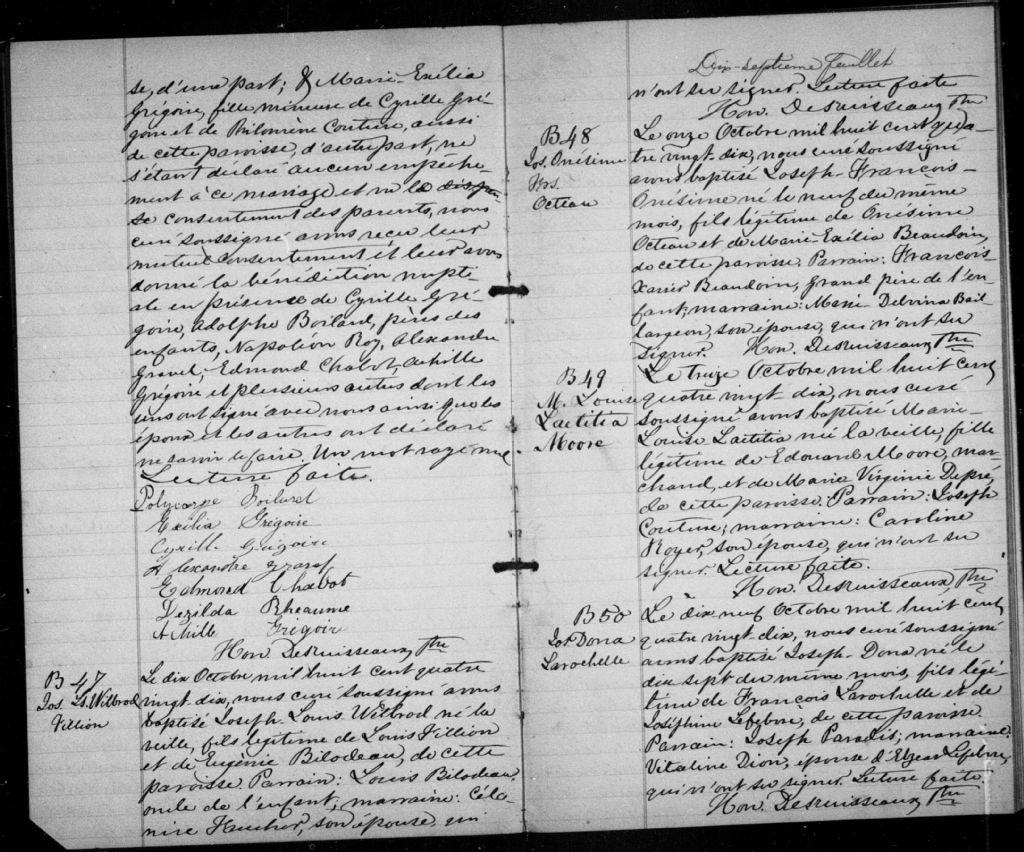 se, d'une part; & Marie-Exélia
Grégoire, fille mineure de Cyrille Gré-
goire et de Philomène Couture, aussi
de cette paroisse, d'autre part, ne
s'étant déclaré aucun empêche-
ment à ce mariage et vu le
consentement des parents, nous
curé soussigné avons reçu leur
mutuel consentement et leur avons
donné la bénédiction nupti-
ale en présence de Cyrille Gré-
goire, Adolphe Boiland, pères des
enfants, Napoléon Roy, Alexandre
Gravel, Edmond Chabot, Achille
Grégoire et plusieurs autres dont les
uns ont signé avec nous ainsi que les
époux et les autres ont déclaré
ne savoir le faire. Un mot rayé nul.
Lecture faite.
Polycarpe Boiland
Exélia Grégoire
Cyrille Grégoire
Alexandre Gravel
Edmond Chabot
Dezilda Rheaume
Achille Grégoir
Hon. Desruisseaux, Ptre
B 47
Jos. Ls. Wilbrod
Fillion
Le dix Octobre mil huit cent quatre
vingt dix, nous curé soussigné avons
baptisé Joseph Louis Wilbrod né la
veille, fils légitime de Louis Fillion
et de Eugénie Bilodeau, de cette
paroisse. Parrain: Louis Bilodeau,
oncle de l'enfant, marraine: Célo-
nire son épouse, qui
Dix-septième feuillet
n'ont su signer. Lecture faite
Hon. Desruisseaux, Ptre
B 48
Jos. Onésime
Frs.
Octeau
Le onze Octobre mil huit cent qua-
tre vingt-dix, nous curé soussigné
avons baptisé Joseph-François-
Onésime né le neuf du même
mois, fils légitime de Onésime
Octeau et de Marie Exélia Beaudoin,
de cette paroisse. Parrain: François-
Xavier Beaudoin, grand père de l'en-
fant; marraine: Marie Delvina Bail
largeon, son épouse, qui n'ont su
signer. Hon. Desruisseaux, Ptre
B 49
M. Louise
Laetitia
Moore
Le treize Octobre mil huit cent
quatre vingt-dix, nous curé
soussigné avons baptisé Marie-
Louise Laetitia née la veille, fille
légitime de Edouard Moore, mar-
chand, et de Marie Virginie Dupré,
de cette paroisse. Parrain: Joseph
Couture; marraine: Caroline
Royer, son épouse, qui n'ont su
signer. Lecture faite.
Hon. Desruisseaux, Ptre
B 50
Jos. Dona
Larochelle
Le dix neuf Octobre mil huit cent
quatre vingt dix, nous curé soussigné
avons baptisé Joseph-Dona né le
dix sept du même mois, fils légi-
time de François Larochelle et de
Joséphine Lefebvre, de cette paroisse.
Parrain: Joseph Paradis; marraine:
Vitaline Dion, épouse d'Elzear Lefebvre,
qui n'ont su signer. Lecture faite.
Hon. Desruisseaux, Ptre